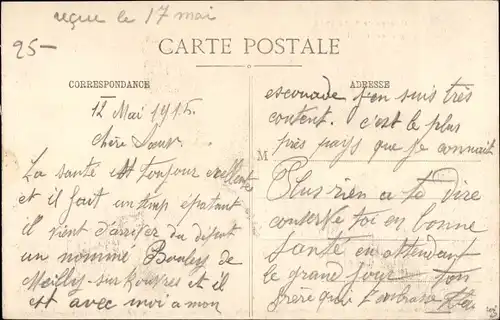 reçue le 17 mai
25-
CARTE POSTALE
CORRESPONDANCE
12 Mai 1915.
chère Soeur
La santé est toujour excellente
et il fait un temp épatant
il vient d'arriver du dépot
un nommé Bouley de
Meilly-sur-Rouvres et il
est avec moi a mon
ADRESSE
M
escouade j'en suis très
content. c'est le plus
près pays que je connait
Plus rien a te dire
conserve toi en bonne
santé en attendant
le grand jour ton
frère qui t'embrasse